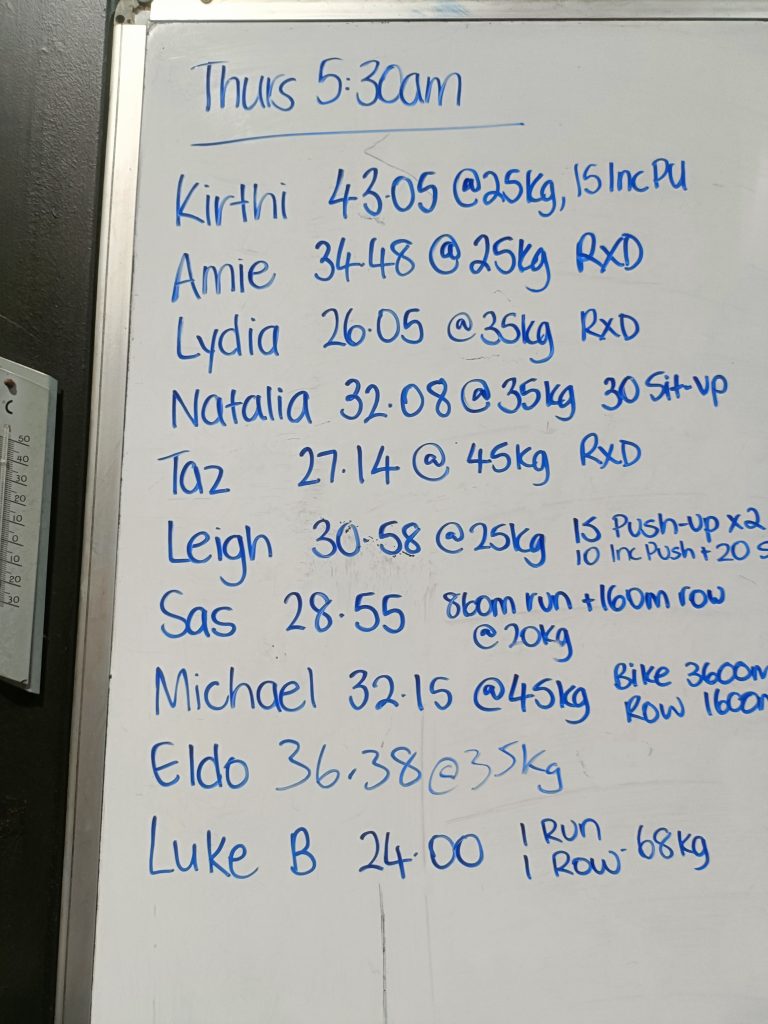 Thurs 5:30am
Kirthi 43.05 @25kg, 15 Inc PU
Amie 34.48 @ 25kg RXD
Lydia 26.05 @35kg RXD
Natalia 32.08 @ 35kg 30 Sit-up
Taz 27.14 @ 45kg RXD
Leigh 30.58 @25kg 15 Push-up x2
10 Inc Push + 20 S
Sas 28.55 860m run + 160m row
@ 20kg
Michael 32.15 @45kg Bike 3600m
Row 1600m
Eldo 36.38 @35kg
Luke B 24.00 1 Run
1 Row - 68kg
°C
50
40
30
20
10
0
10
20
30